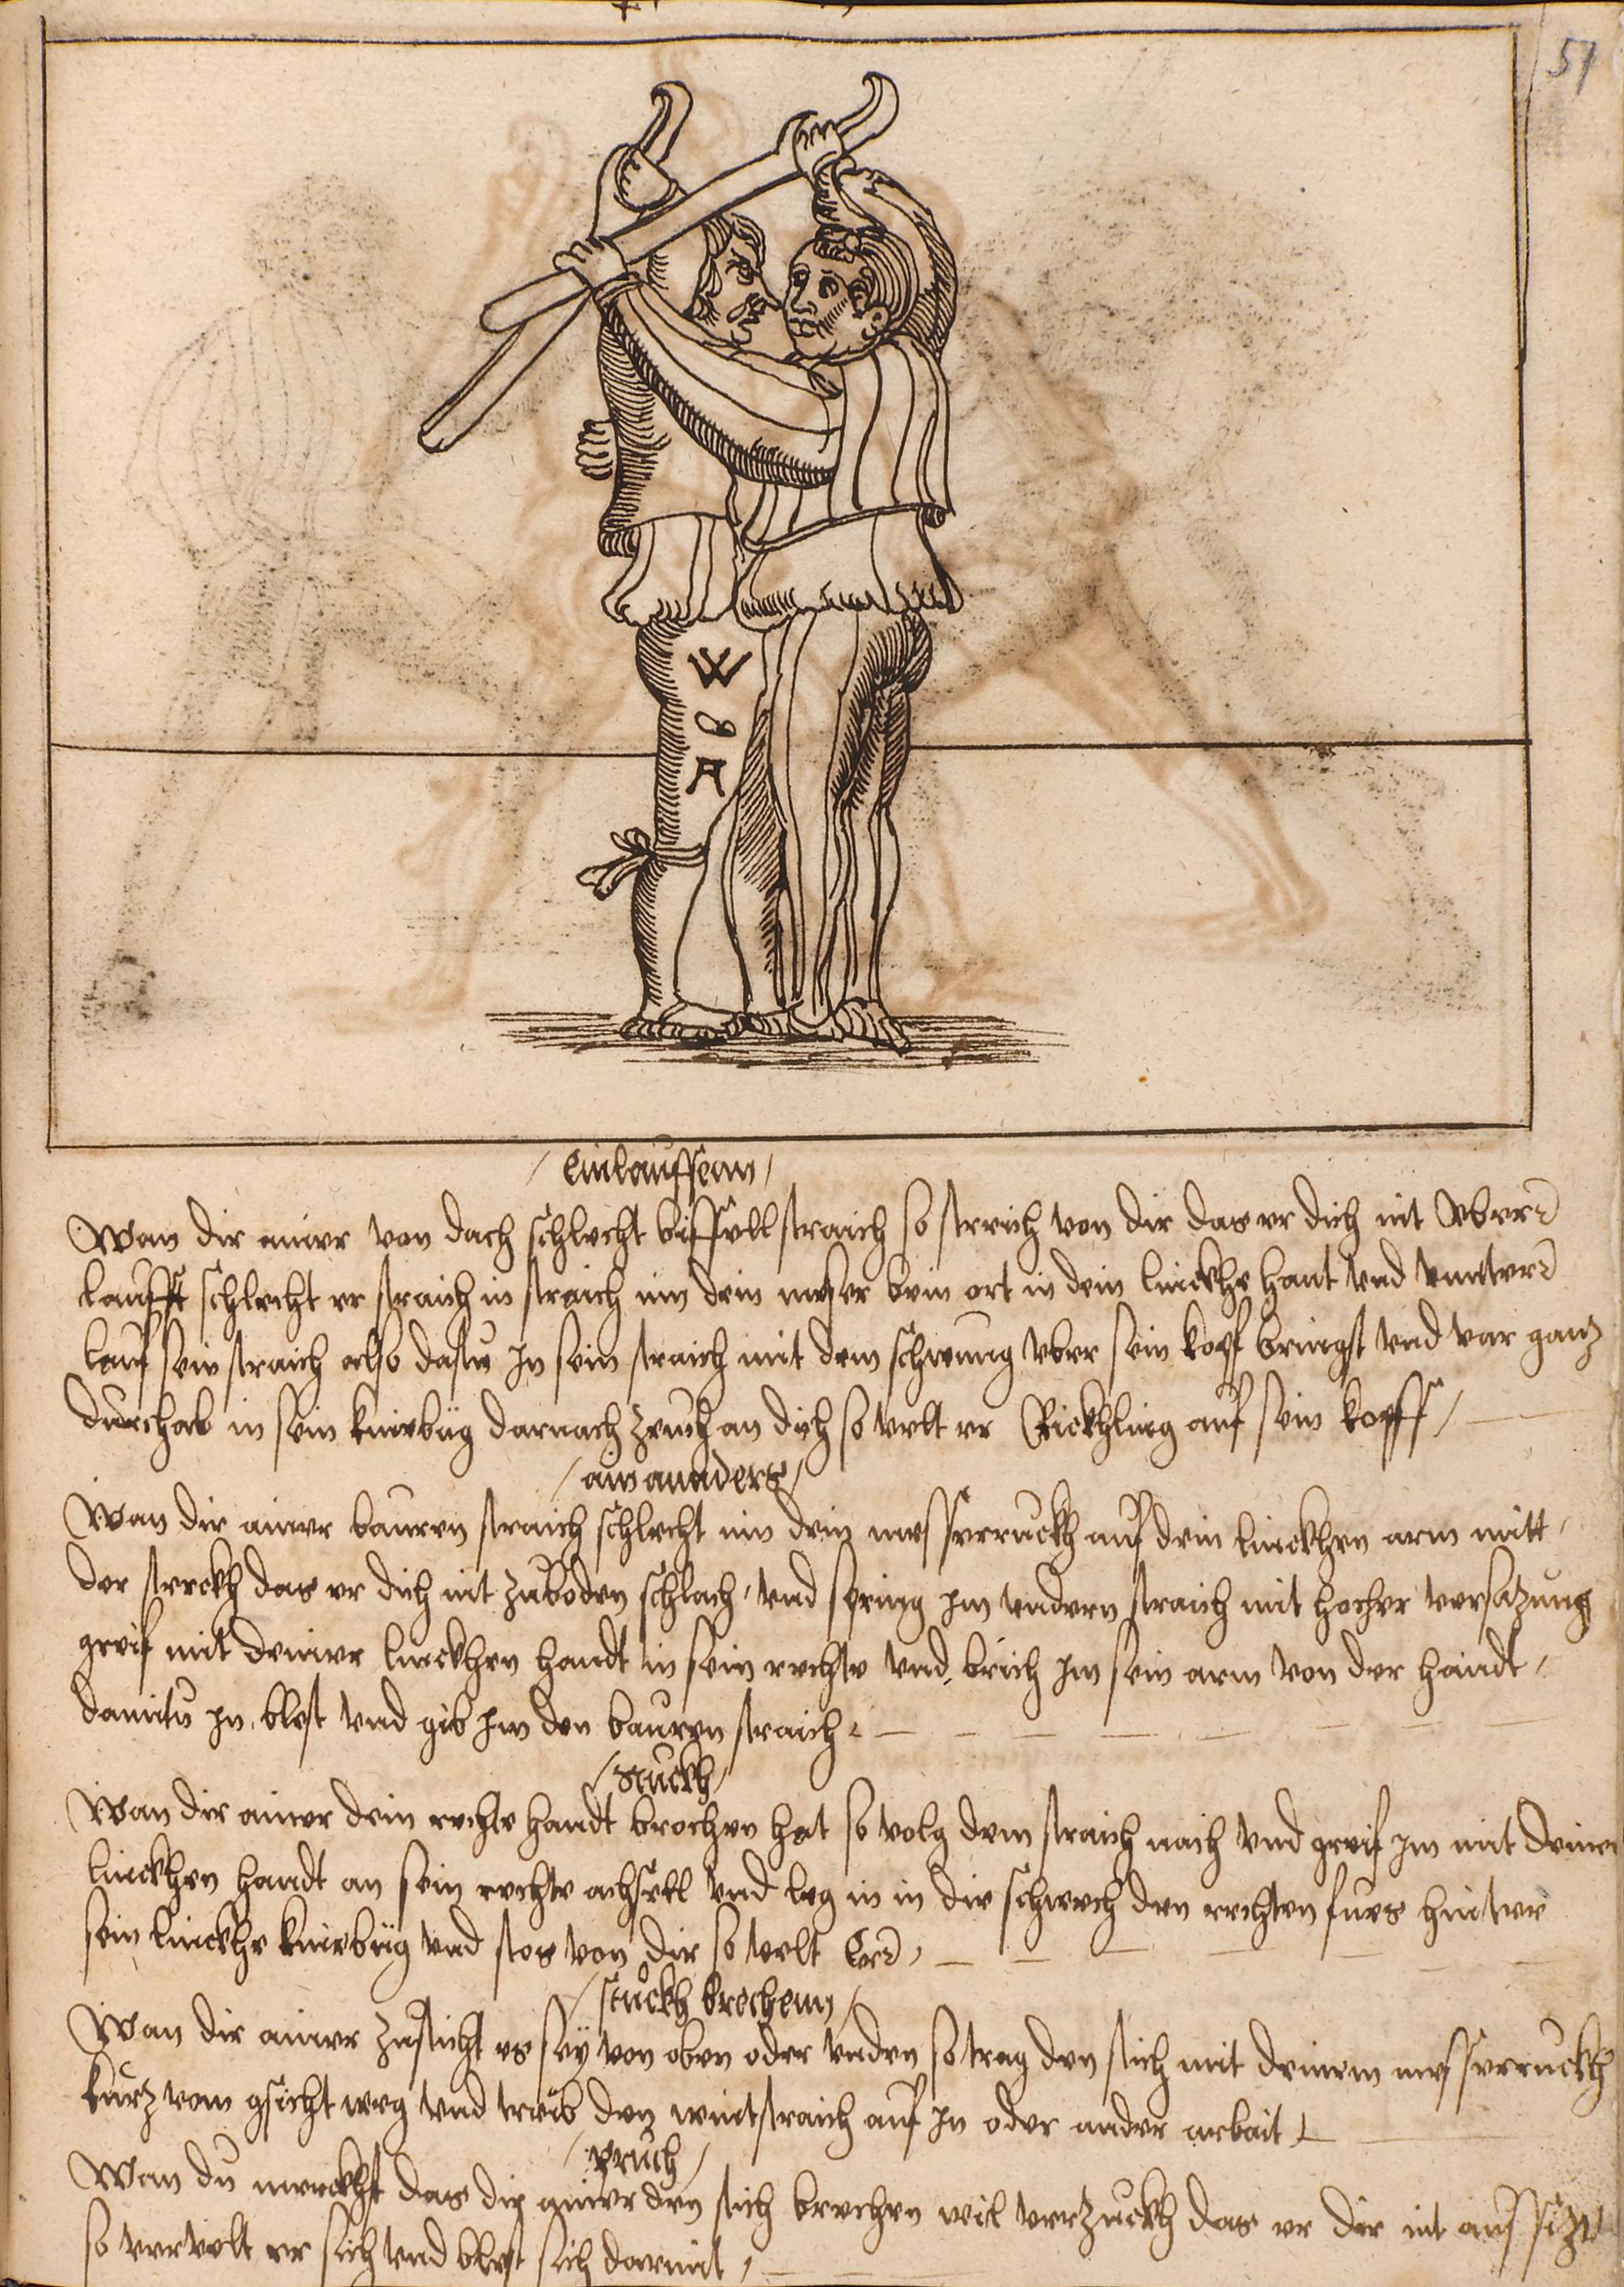 51
W
6
A
/ Einlauffenn /
Wan dir ainer von dach schlecht bissell straich so streich von dir das er dich nit vbere
laufft schlecht er straich in straich nim dein messer beim ort in dein linckhe hant vnd vnntere
lauf sein straich also dastu jn sein straich mit dem schwung vber sein kopf bringst vnd var ganz
durchab in sein kniebüg darnach zeuch an dich so velt er Rickhling auf sein kopff /
/ ain annders /
Wan dir ainer bauren straich schlecht nim dein messerruckh auf dein linckhen arm mitt /
der sterckh das er dich nit zuboden schlach / vnd spring jm vndern straich mit hocher versatzung
greif mit deiner linckhen handt in sein rechte vnd brich jm sein arm von der handt /
damitu jn blest vnd gib jm den bauren straich /
/ stuckh /
Wan dir ainer dein rechte handt brochen hat so volg dem straich nach vnd greif jm mit deiner
linckhen handt an sein rechte achsell vnd leg in in die schwech den rechten fues hinter
sein linckhe kniebüg vnd stos von dir so velt Er /
/ stuckh brechenn /
Wan dir ainer zusticht es seÿ von oben oder vnden so trag den stich mit deinem messerruckh
kurz vom gsicht weg vnd treib den wintstraich auf jn oder ander arbait /
/ pruch /
Wan du merckhst das dir ainer den stich brechen wil verzuckh das er dir nit aufsize
so vervelt er sich vnd blest sich darmit /